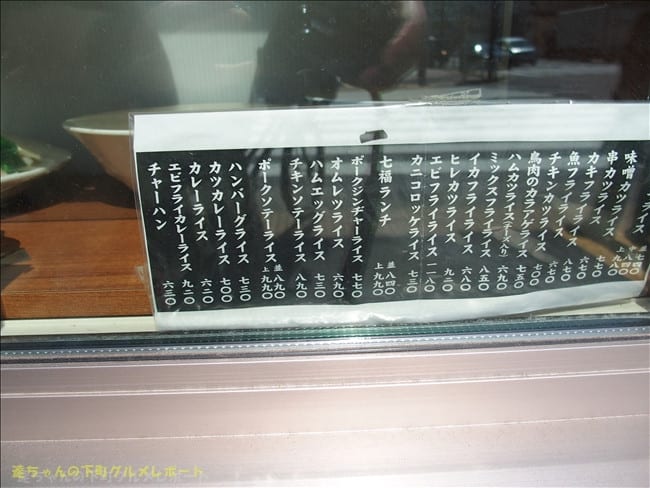 ライス
味噌カツライス
串カツライス
カキフライライス
魚フライライス
チキンカツライス 六七〇
鳥肉のカラアゲライス 七〇〇
ハムカツライス(チーズ入り) 七五〇
ミックスフライライス 六九〇
イカフライライス 八五〇
ヒレカツライス 六八〇
エビフライライス 九二〇
カニコロッケライス 一一八〇
七三〇
七福ランチ 並 八四〇 上 九九〇
ポークジンヂャーライス 七七〇
オムレツライス 六九〇
ハムエッグライス 七三〇
チキンソテーライス 八九〇
ポークソテーライス 並八九〇 上九九〇
ハンバーグライス 七三〇
カツカレーライス 七二〇
カレーライス 六二〇
エビフライカレーライス 九二〇
チャーハン 六三〇
達ちゃんの下町グルメレポート